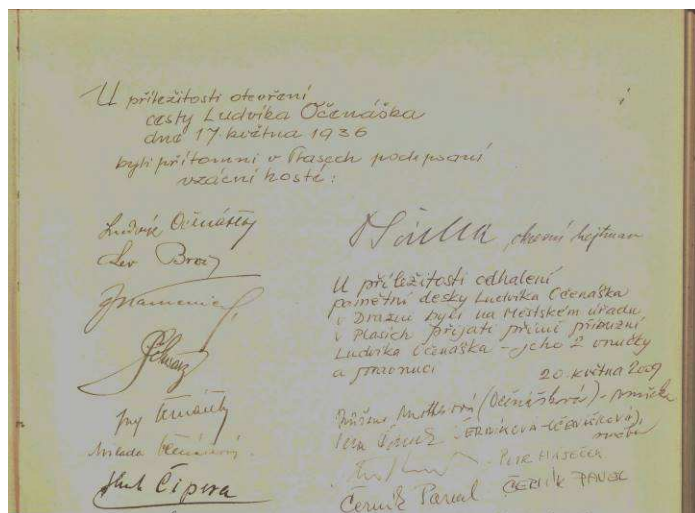 U příležitosti otevření
cesty Ludvíka Očenáška
dne 17. května 1936
byli přítomni v Plasech podepsaní
vzácní hosté:
Ludvík Očenášek
Lev Brož
Schwarz
Ing
Milada
Čipera
okresní hejtman
U příležitosti odhalení
pamětní desky Ludvíka Očenáška
v Dražni byli na Městském úřadu
v Plasích přijati přímí příbuzní
Ludvíka Očenáška - jeho 2 vnučky
a pravnuci
20. května 2009
(Očenášková) -
PETR MAŠEČEK
Černík Pavel ČERNÍK PAVEL